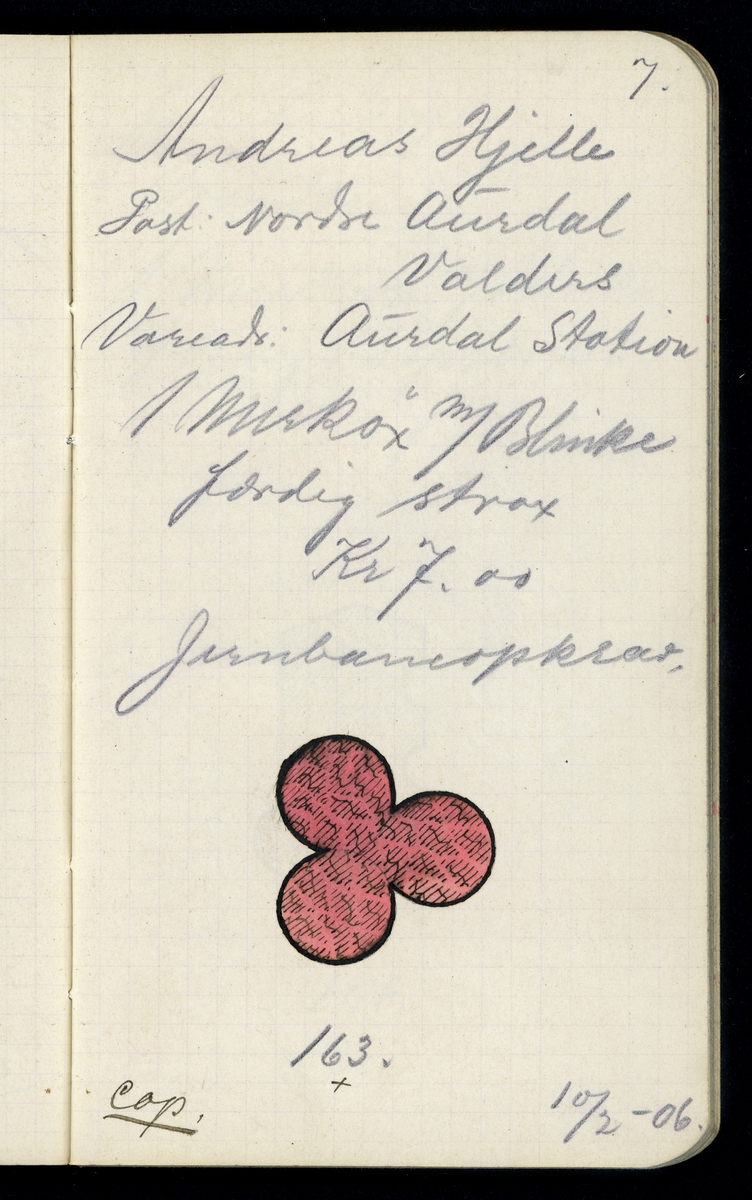 7.
Andreas Hjelle
Post: Nordre Aurdal
Valders
Vareads: Aurdal Station
1 Merkøx m/ Blinke
færdig strax
Kr 7.00
Jernbaneopkrav.
163.
x
cop.
10/2-06.